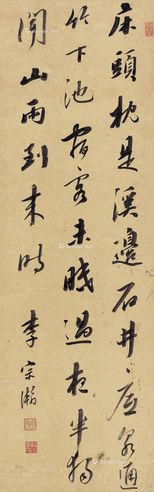 床頭枕是溪邊石井底泉通
竹下池宿客未眠過夜半獨
聞山雨到來時 李宗瀚